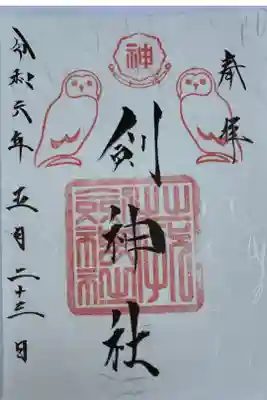 奉拝
神
剣神社
令和六年 五月二十三日